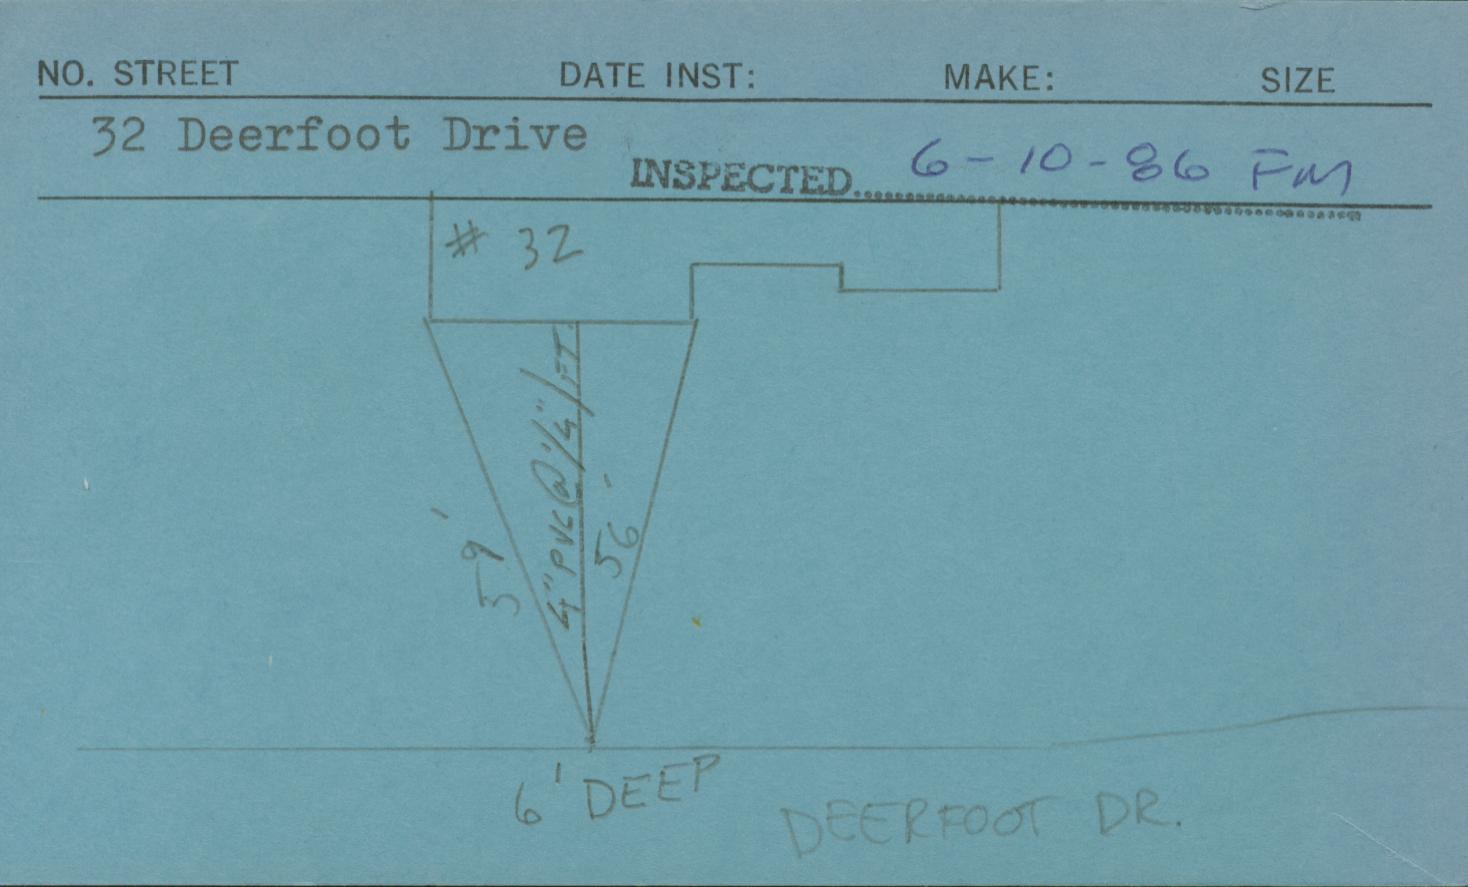 NO. STREET DATE INST: MAKE: SIZE
32 Deerfoot Drive
INSPECTED 6-10-86 FM
# 32
59'
4" PVC @ 1/4" / FT.
56'
6' DEEP
DEERFOOT DR.